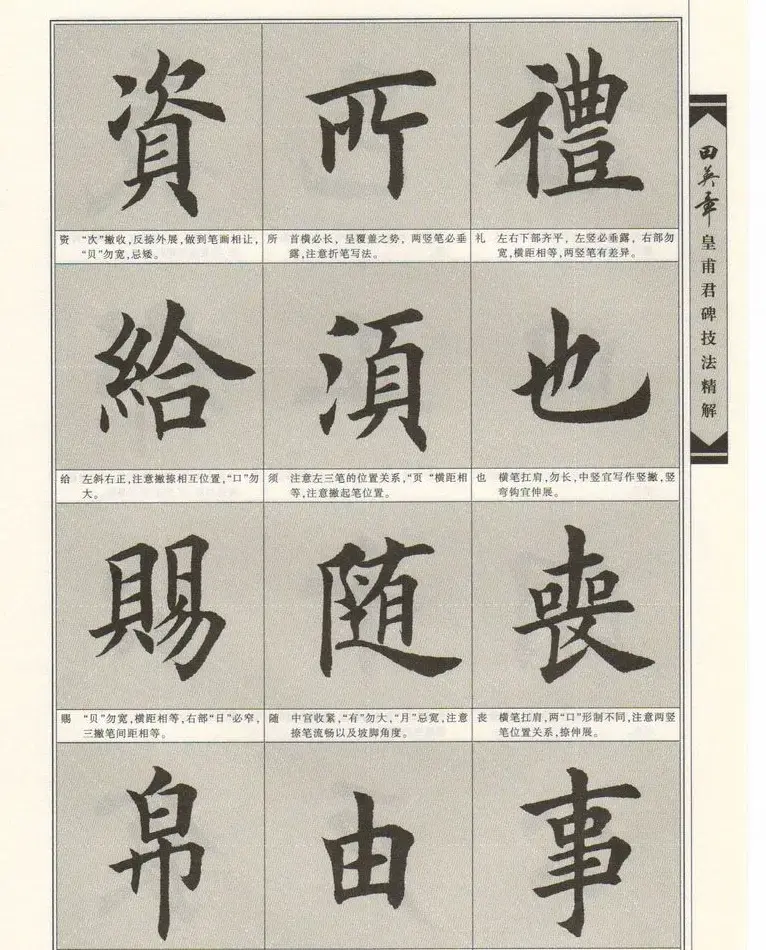 資 所 禮
资 “次”撇收,反捺外展,做到笔画相让,
“贝”勿宽,忌矮。
所 首横必长，呈覆盖之势，两竖笔必垂
露,注意折笔写法。
礼 左右下部齐平，左竖必垂露，右部勿
宽,横距相等,两竖笔有差异。
給 須 也
给 左斜右正,注意撇捺相互位置,“口”勿
大。
须 注意左三笔的位置关系,“页“横距相
等,注意撇起笔位置。
也 横笔扛肩,勿长,中竖宜写作竖撇,竖
弯钩宜伸展。
賜 随 喪
赐 “贝”勿宽,横距相等,右部“日”必窄,
三撇笔间距相等。
随 中宫收紧,“有”勿大,“月”忌宽,注意
捺笔流畅以及坡脚角度。
丧 横笔扛肩,两“口”形制不同,注意两竖
笔位置关系,捺伸展。
帛 由 事
田英章
皇甫君碑技法精解